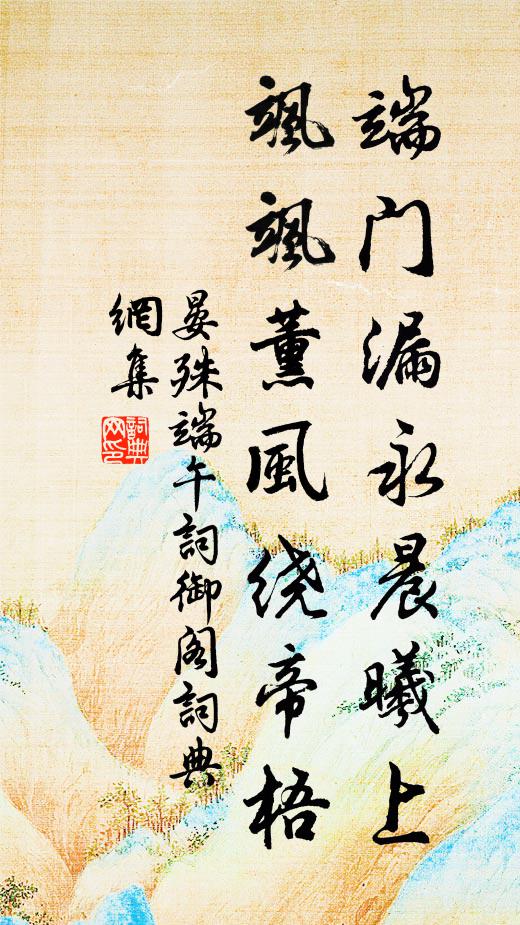 端门漏永晨曦上
飒飒薰风绕帝梧
晏殊端午詞御阁詞典
網集
詞典
网印